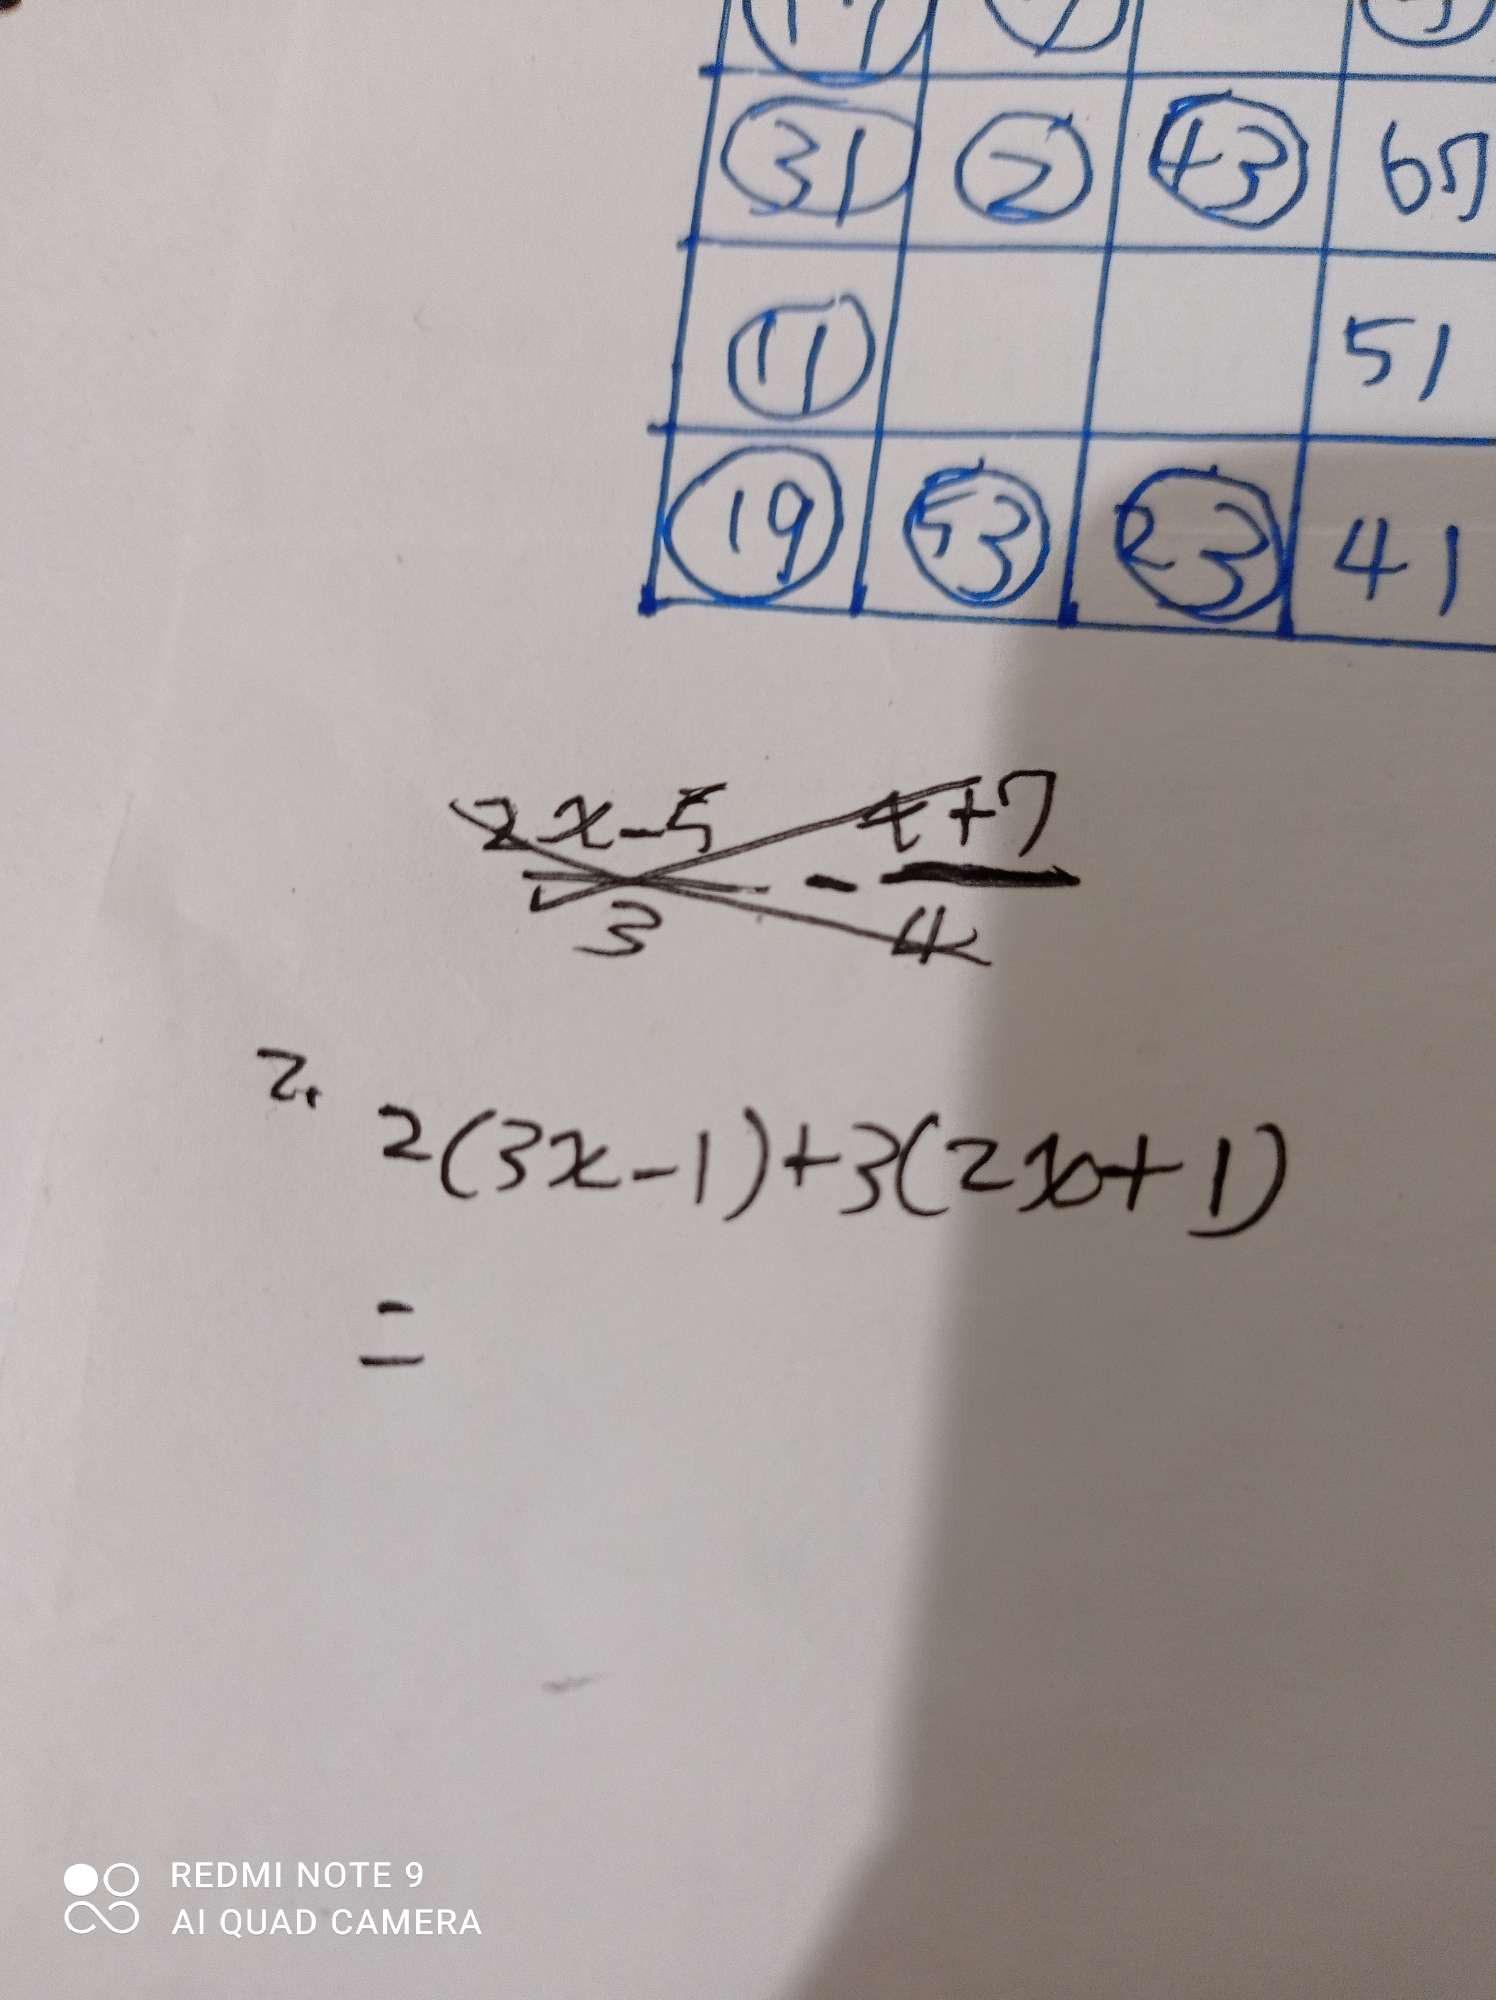 31 2 43 65
11 51
19 53 23 41
2x-5 / 3 - x+7 / 4
2.
2(3x-1)+3(2x+1)
=
REDMI NOTE 9
AI QUAD CAMERA